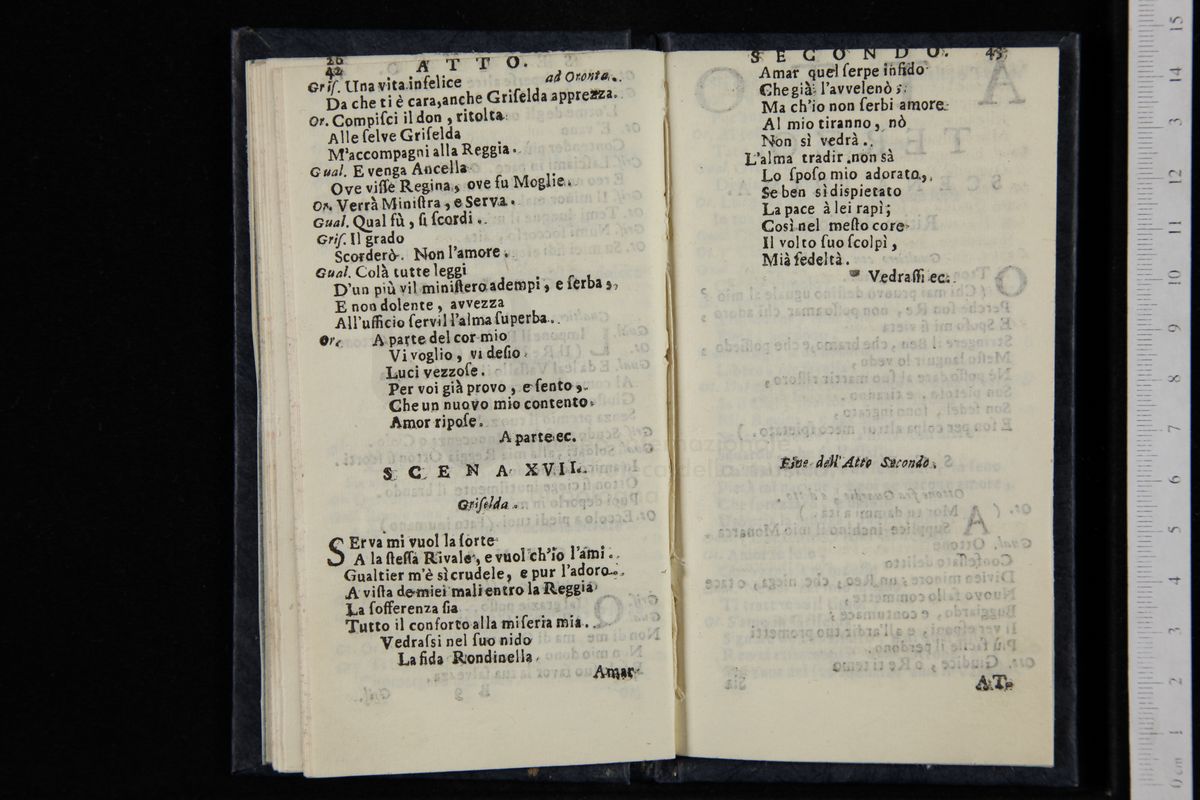 42 ATTO.
Griſ. Una vita infelice ad Oronta.
Da che ti è cara, anche Griſelda apprezza.
Or. Compiſci il don, ritolta
Alle ſelve Griſelda
M'accompagni alla Reggia.
Gual. E venga Ancella
Ove viſſe Regina, ove fu Moglie.
Or. Verrà Miniſtra, e Serva.
Gual. Qual fù, ſi ſcordi.
Griſ. Il grado
Scorderò. Non l'amore.
Gual. Colà tutte leggi
D'un più vil miniſtero adempi, e ſerba,
E non dolente, avvezza
All'ufficio ſervil l'alma ſuperba.
Or. A parte del cor mio
Vi voglio, vi deſio
Luci vezzoſe.
Per voi già provo, e ſento,
Che un nuovo mio contento
Amor ripoſe.
A parte ec.
SCENA XVII.
Griſelda.
SErva mi vuol la ſorte
A la ſteſſa Rivale, e vuol ch'io l'ami.
Gualtier m'è sì crudele, e pur l'adoro.
A viſta de miei mali entro la Reggia
La ſofferenza ſia
Tutto il conforto alla miſeria mia.
Vedraſsi nel ſuo nido
La fida Rondinella
Amar
SECONDO. 43
Amar quel ſerpe infido
Che già l'avvelenò;
Ma ch'io non ſerbi amore
Al mio tiranno, nò
Non sì vedrà.
L'alma tradir non sà
Lo ſpoſo mio adorato,
Se ben sì diſpietato
La pace à lei rapì;
Così nel meſto core
Il volto ſuo ſcolpì,
Mià fedeltà.
Vedraſſi ec.
Fine dell'Atto Secondo.
AT-